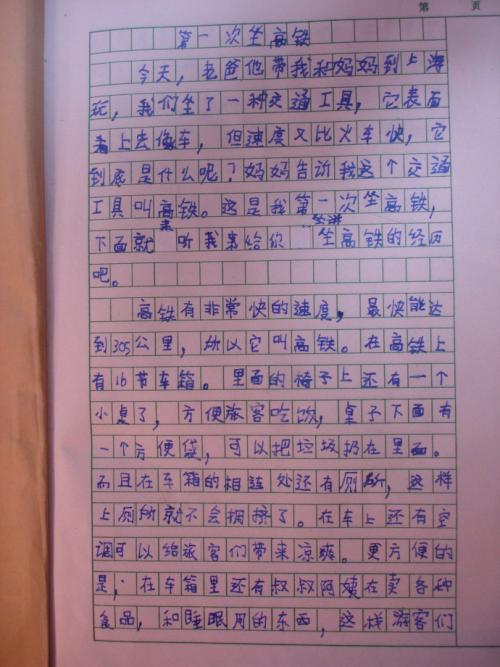 第 页
第一次坐高铁
今天，老爸他带我和妈妈到上海
玩，我们坐了一种交通工具，它表面
看上去像车，但速度又比火车快，它
到底是什么呢？妈妈告诉我这个交通
工具叫高铁。这是我第一次坐高铁，
下面就来听我来给你坐高铁的经历
吧。
高铁有非常快的速度，最快能达
到305公里，所以它叫高铁。在高铁上
有16节车箱。里面的椅子上还有一个
小桌了，方便旅客吃饮，桌子下面有
一个方便袋，可以把垃圾扔在里面。
而且在车箱的相连处还有厕所，这样
上厕所就不会拥挤了。在车上还有空
调可以给旅客们带来凉爽。更方便的
是，在车箱里还有叔叔阿姨在卖各种
食品，和睡眠用的东西，这样游客们